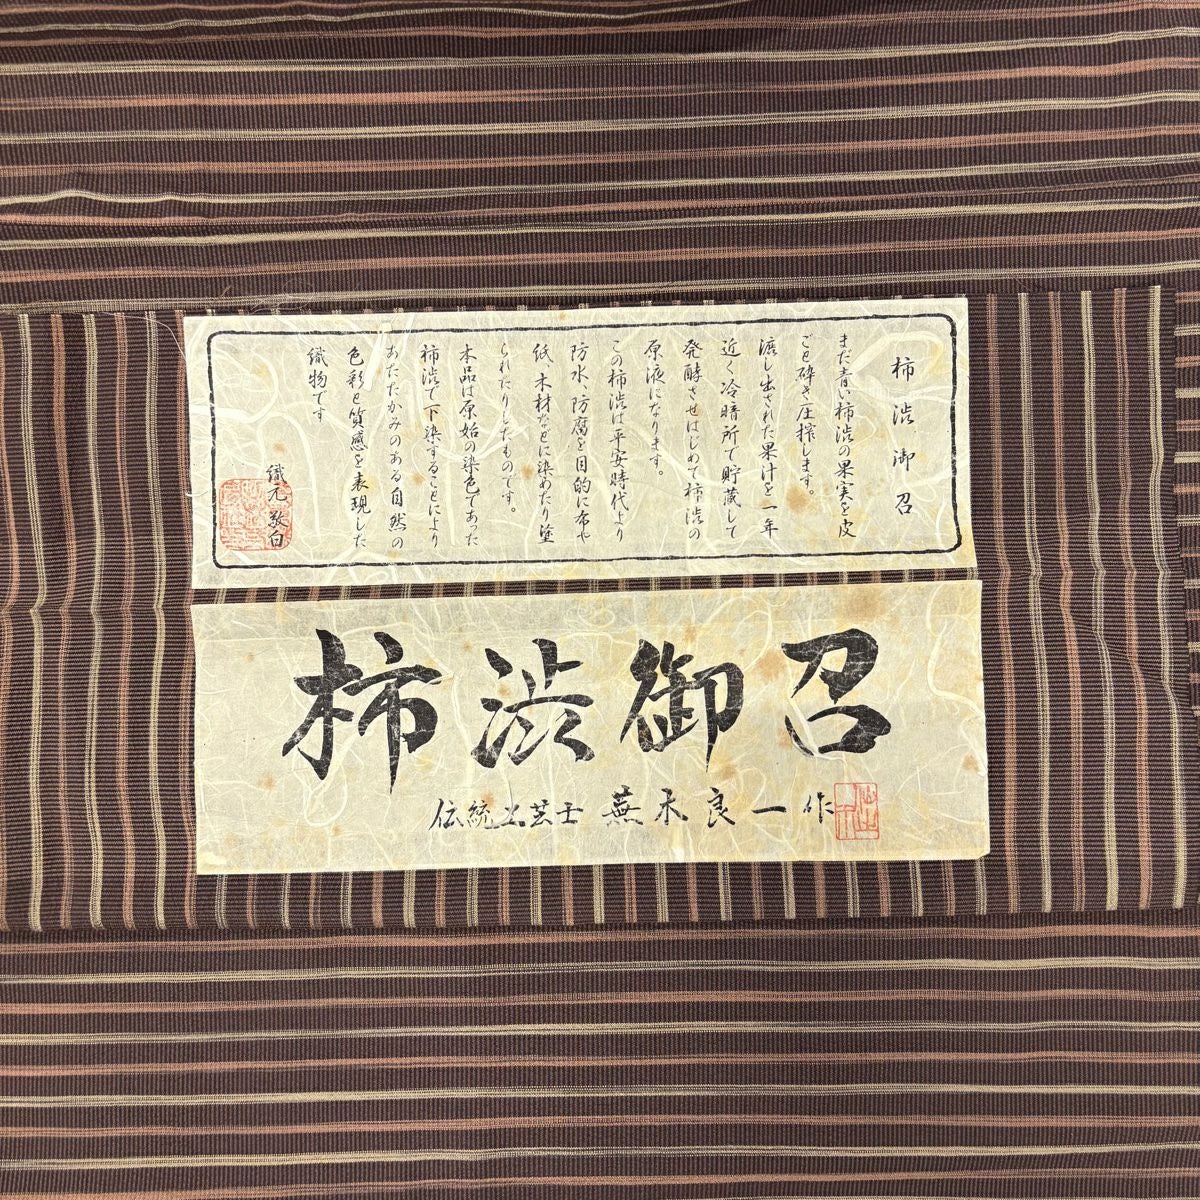 柿渋御召
まだ青い柿渋の果実を皮
ごと砕き圧搾します。
漉し出された果汁を一年
近く冷暗所で貯蔵して
発酵させはじめて柿渋の
原液になります。
この柿渋は平安時代より
防水、防腐を目的に布や
紙、木材などに染めたり塗
られたりしたものです。
本品は原始の染色であった
柿渋で下染することにより
あたたかみのある自然の
色彩と質感を表現した
織物です
織元 敬白
柿渋御召
伝統工芸士 蕪木良一作